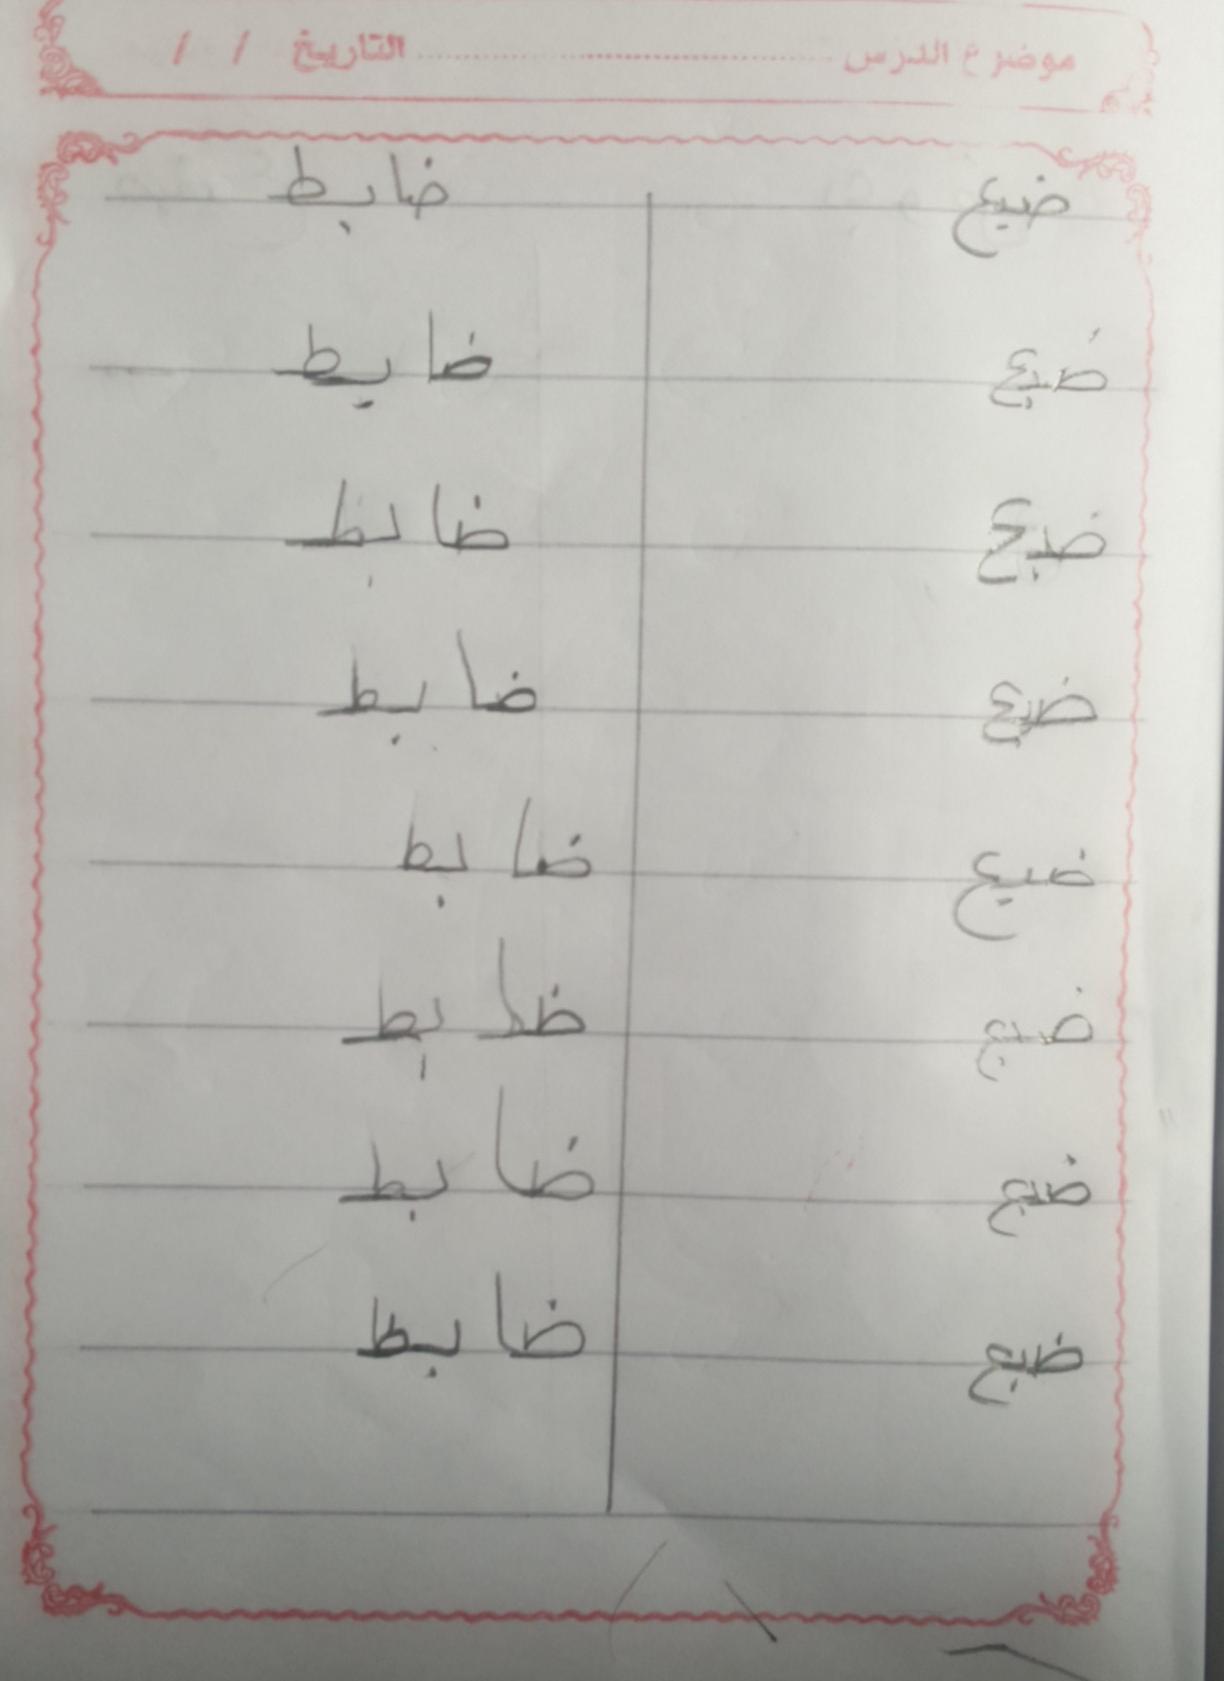 موضوع الدرس ........................ التاريخ / /
ضبع ضابط
ضبع ضابط
ضبع ضابط
ضبع ضابط
ضبع ضابط
ضبع ضابط
ضبع ضابط
ضبع ضابط